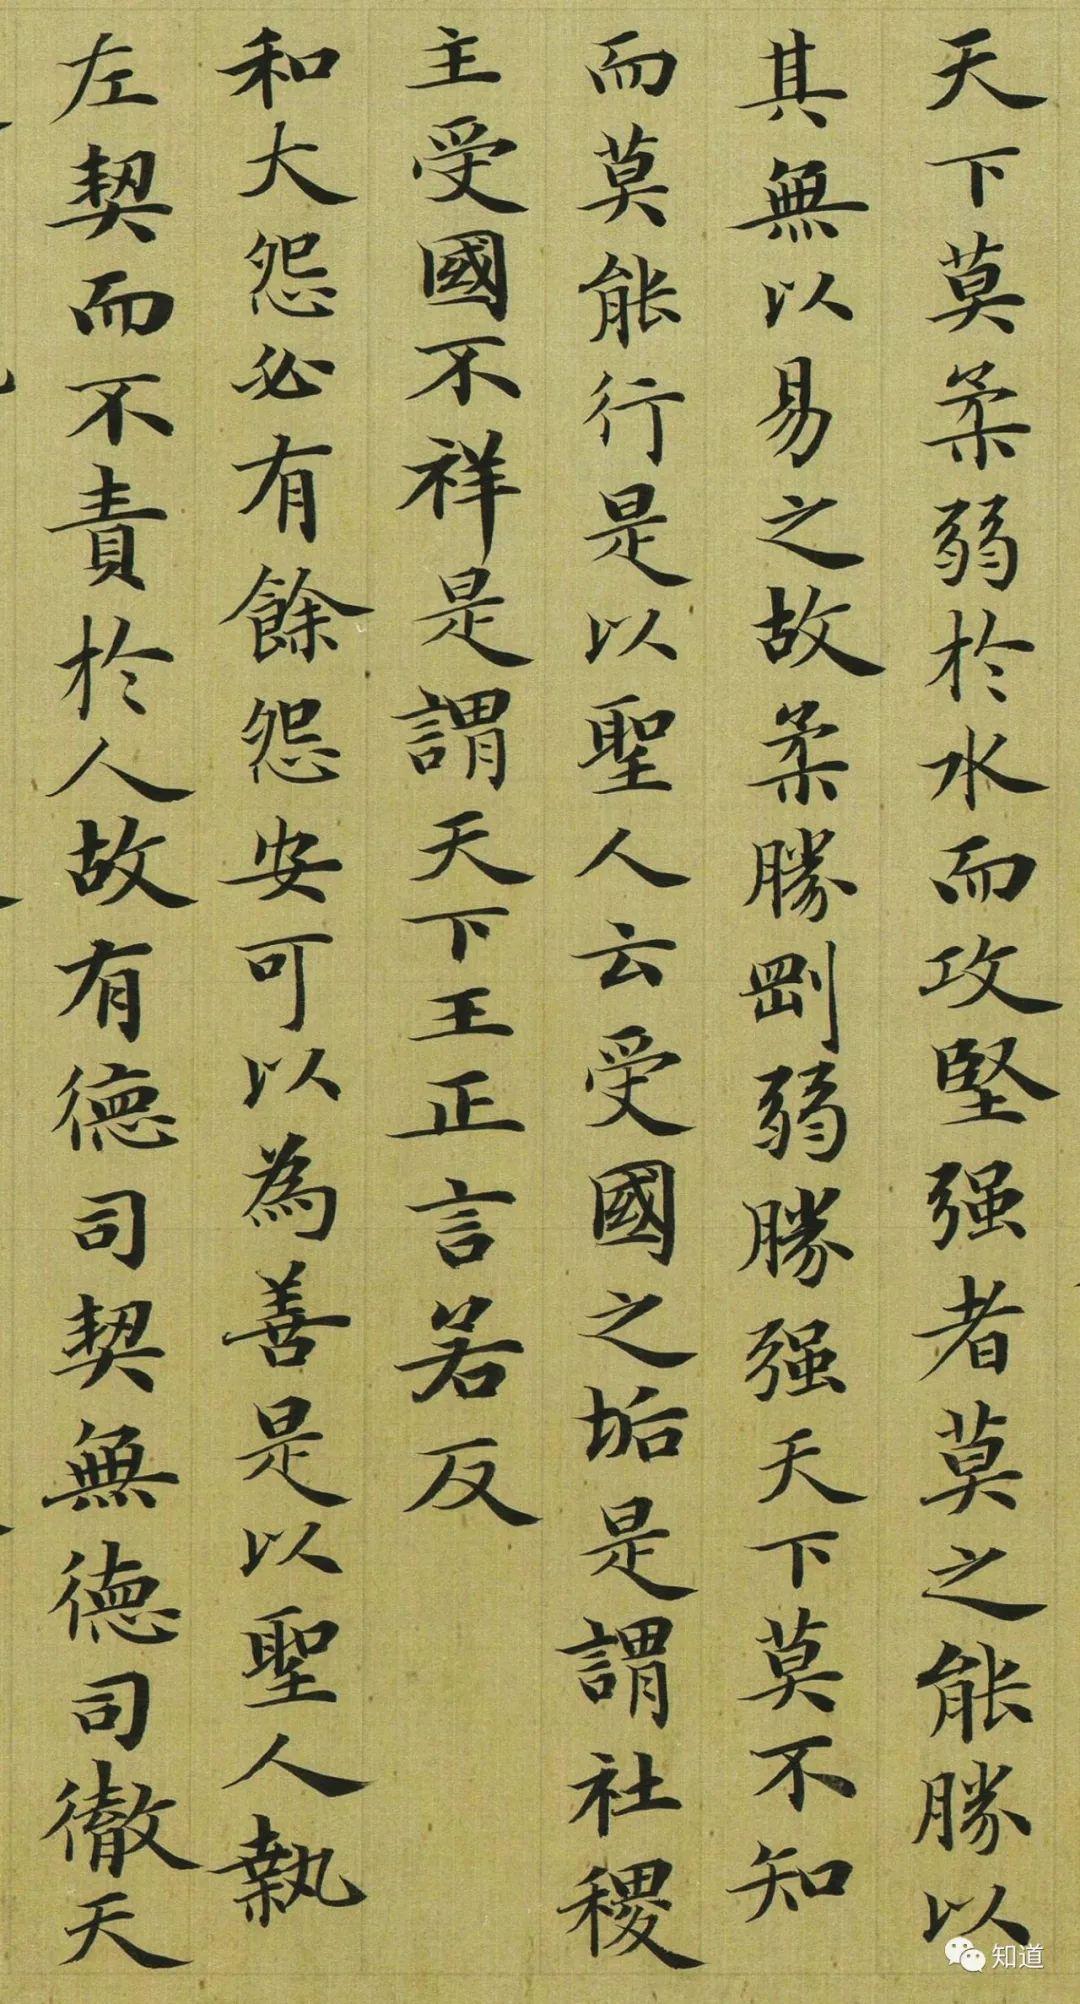 天下莫柔弱於水而攻堅强者莫之能勝以
其無以易之故柔勝剛弱勝强天下莫不知
而莫能行是以聖人云受國之垢是謂社稷
主受國不祥是謂天下王正言若反
和大怨必有餘怨安可以為善是以聖人執
左契而不責於人故有德司契無德司徹天
知道